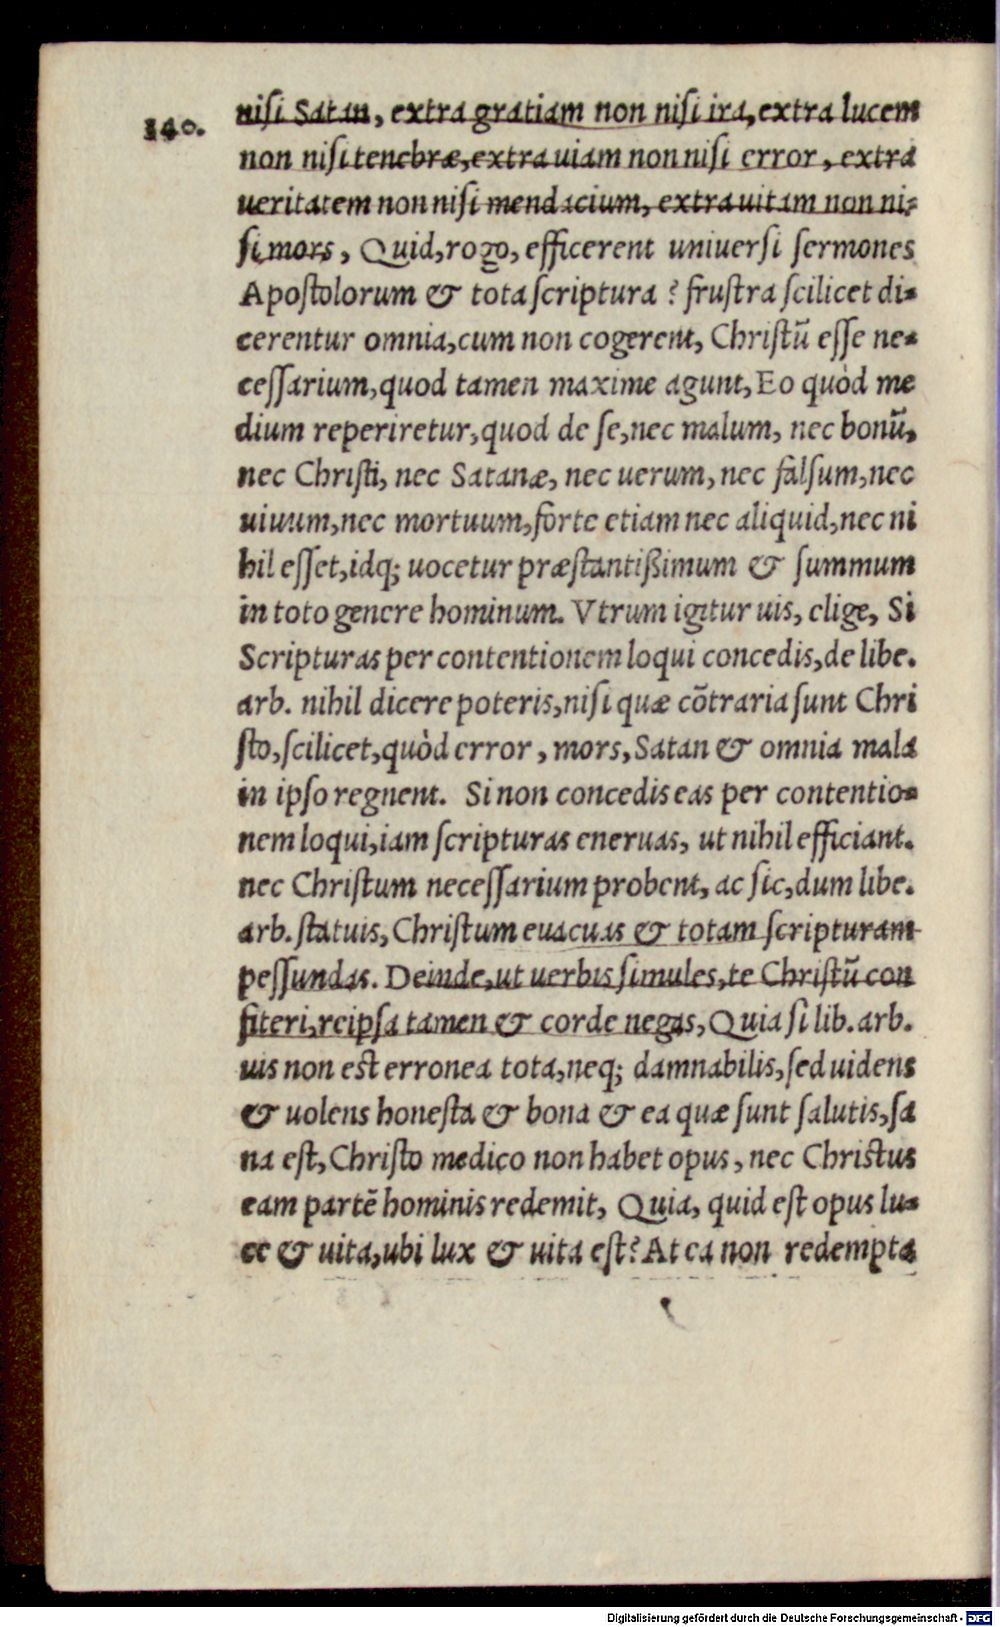 340.
nisi Satan, extra gratiam non nisi ira, extra lucem
non nisi tenebræ, extra uiam non nisi error, extra
ueritatem non nisi mendacium, extra uitam non ni-
si mors, Quid, rogo, efficerent uniuersi sermones
Apostolorum & tota scriptura? frustra scilicet di-
cerentur omnia, cum non cogerent, Christũ esse ne-
cessarium, quod tamen maxime agunt, Eo quòd me
dium reperiretur, quod de se, nec malum, nec bonũ,
nec Christi, nec Satanæ, nec uerum, nec falsum, nec
uiuum, nec mortuum, forte etiam nec aliquid, nec ni
hil esset, idq; uocetur præstantißimum & summum
in toto genere hominum. Vtrum igitur uis, elige, Si
Scripturas per contentionem loqui concedis, de libe.
arb. nihil dicere poteris, nisi quæ cõtraria sunt Chri
sto, scilicet, quòd error, mors, Satan & omnia mala
in ipso regnent. Si non concedis eas per contentio-
nem loqui, iam scripturas eneruas, ut nihil efficiant.
nec Christum necessarium probent, ac sic, dum libe.
arb. statuis, Christum euacuas & totam scripturam
pessundas. Deinde, ut uerbis simules, te Christũ con
fiteri, reipsa tamen & corde negas, Quia si lib. arb.
uis non est erronea tota, neq; damnabilis, sed uidens
& uolens honesta & bona & ea quæ sunt salutis, sa
na est, Christo medico non habet opus, nec Christus
eam partẽ hominis redemit, Quia, quid est opus lu-
ce & uita, ubi lux & uita est? At ea non redempta
Digitalisierung gefördert durch die Deutsche Forschungsgemeinschaft - DFG